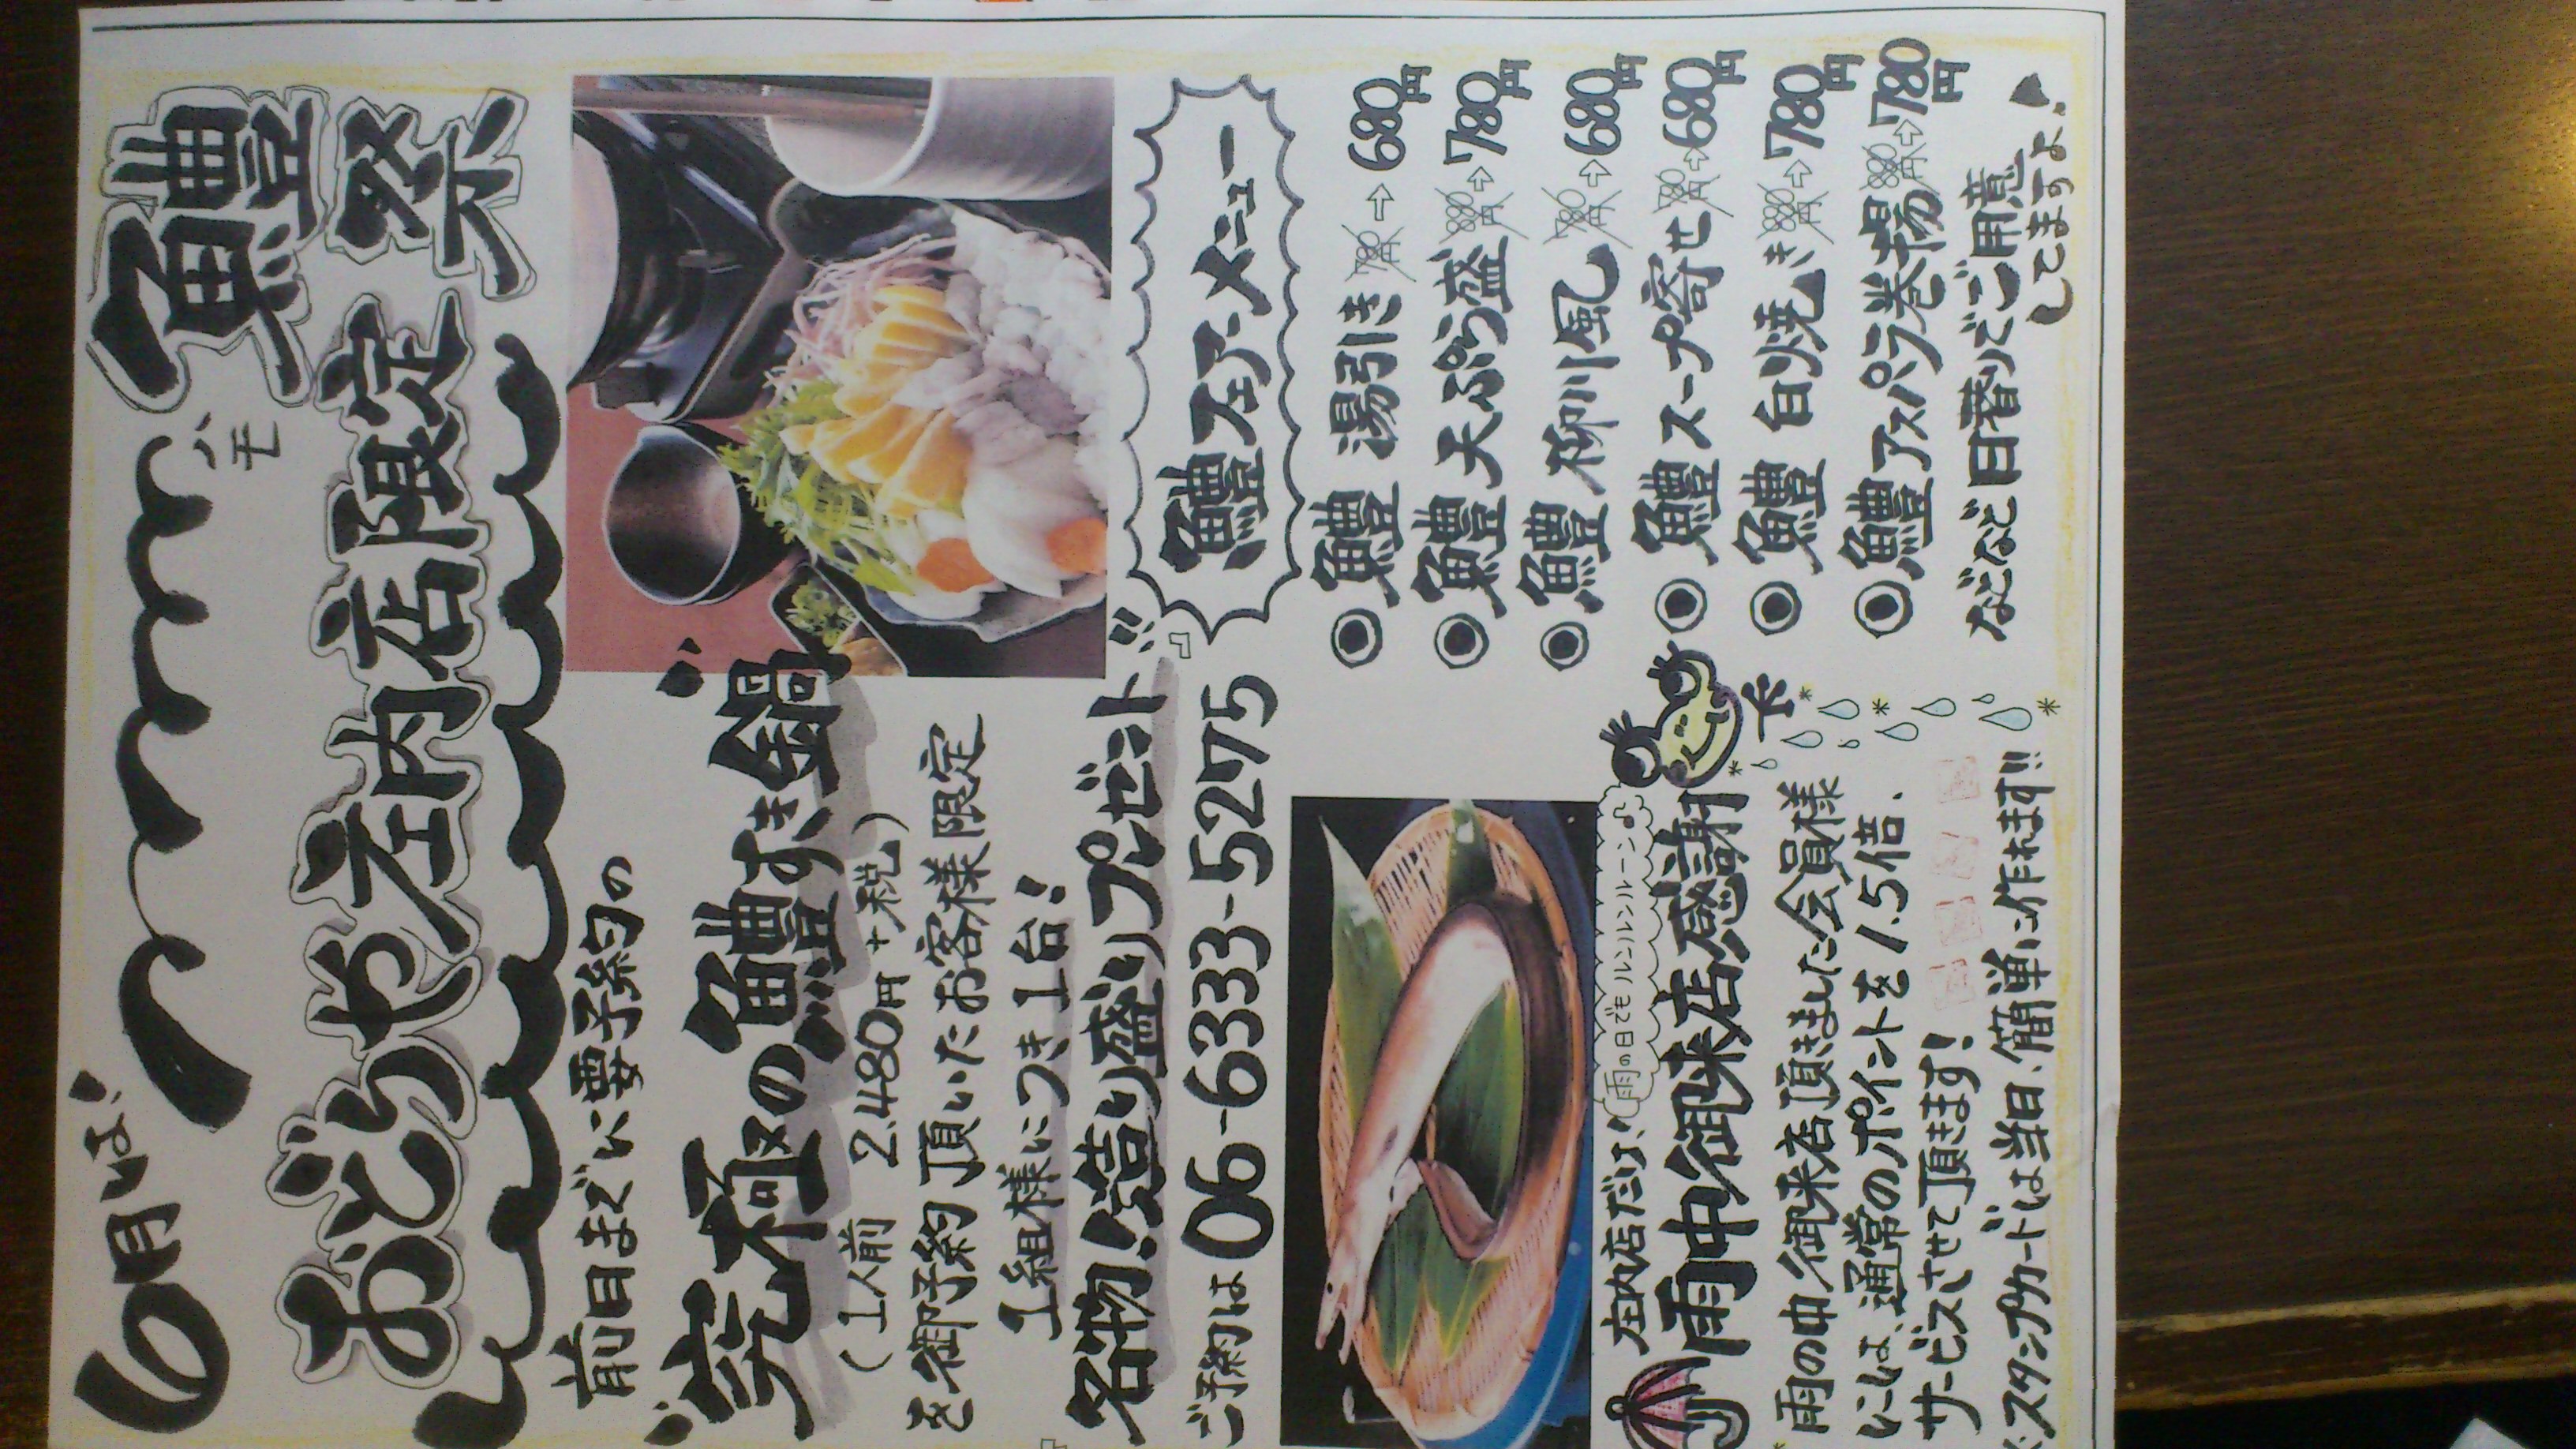 6月は!
おどりや庄内店限定
鱧祭
ハモ
前日までに要予約の
"究極の鱧すき鍋"
(1人前 2,480円+税)
を御予約頂いたお客様限定
1組様につき1台!
『名物!造り盛りプレゼント!!』
ご予約は06-6333-5275
鱧フェアーメニュー
◎鱧 湯引き 780円⇨680円
◎鱧 天ぷら盛 880円⇨780円
◎鱧 柳川風 780円⇨680円
◎鱧 スープ寄せ 780円⇨680円
◎鱧 白焼き 880円⇨780円
◎鱧アスパラ巻揚 880円⇨780円
などなど日替りでご用意
してますよ♥
庄内店だけ!
雨の日でもルンルンルーン♪
雨中御来店感謝
雨の中御来店頂きました会員様
には、通常のポイントを1.5倍、
サービスさせて頂きます!
スタンプカードは当日、簡単に作れます!!